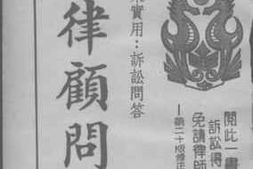 閱此一書
訴訟得
免請律師
—第二十版修正
實用：訴訟問答
律顧問